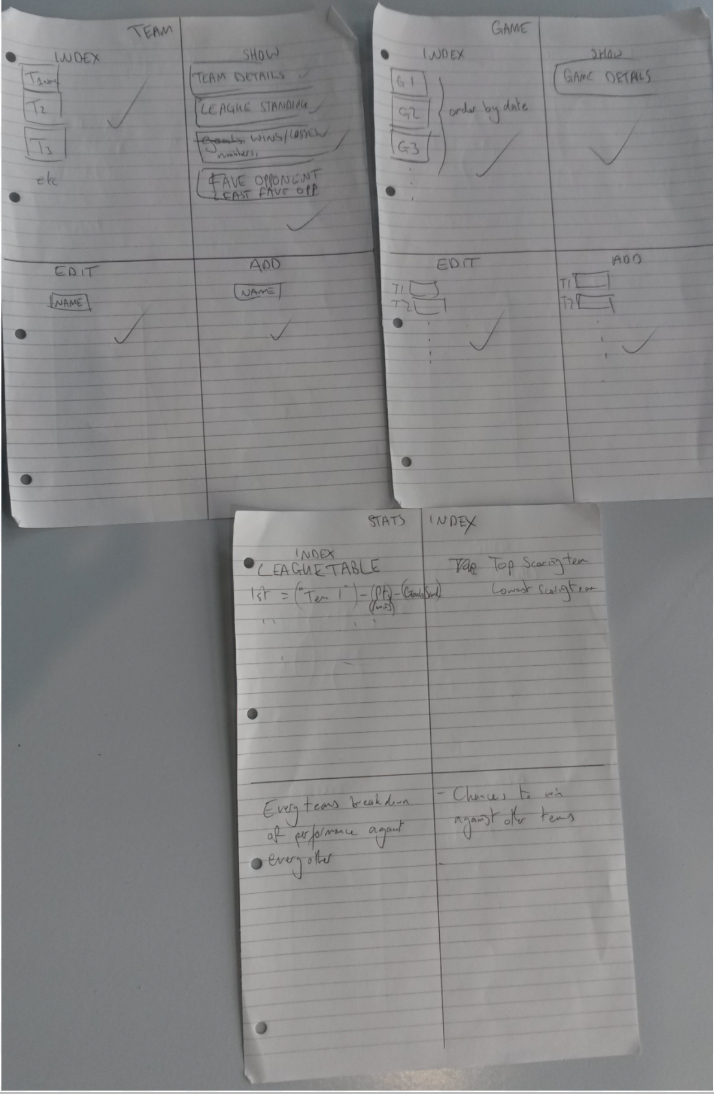 TEAM
INDEX
T2
T3
etc
SHOW
TEAM DETAILS
LEAGUE STANDING
WINS/LOSSES
numbers.
FAVE OPPONENT
LEAST FAVE OPP
EDIT
NAME
ADD
NAME
GAME
INDEX
G1
G2
G3
order by date
SHOW
GAME DETAILS
EDIT
T1
T2
ADD
T1
T2
STATS INDEX
INDEX
LEAGUE TABLE
1st = ("Team 1") - (pts) -
Top Scoring team
Lowest scoring team
Every teams breakdown
of performance against
every other
- Chances to win
against other teams